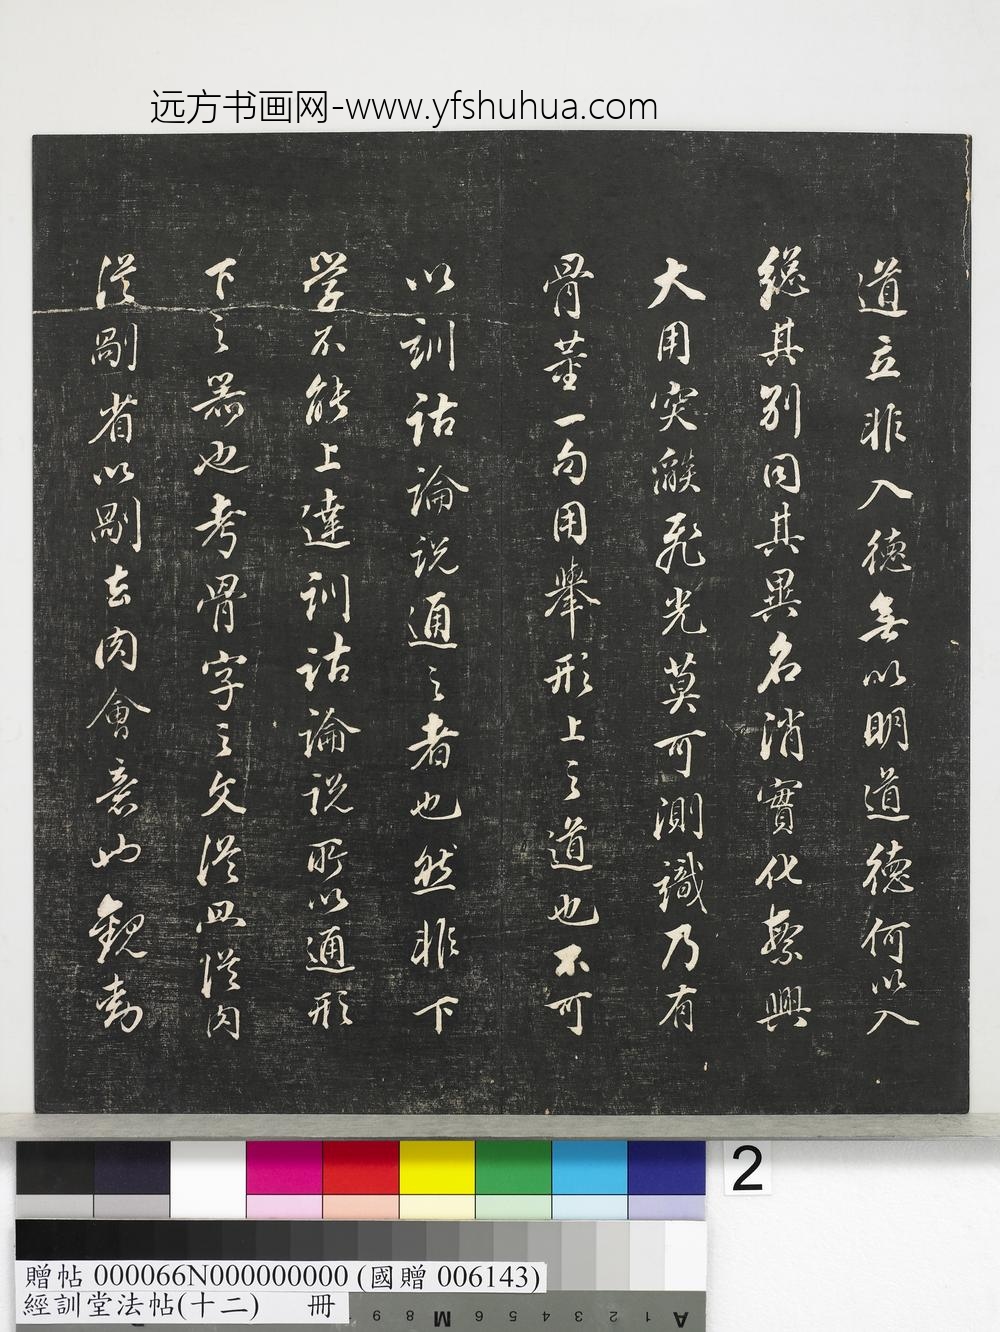 远方书画网-www.yfshuhua.com
道立非入德無以明道德何以入
總其別同其異名消實化繫興
大用突騣飛光莫可測識乃有
骨董一句用舉形上之道也不可
以訓詁論說通之者也然非下
學不能上達訓詁論說所以通形
下之器也考骨字之文從冎從肉
從剮省以剮去肉會意也觀勅
2
贈帖 000066N000000000 (國贈 006143)
經訓堂法帖(十二) 冊
A 1 2 3 4 5 6 M 8 9